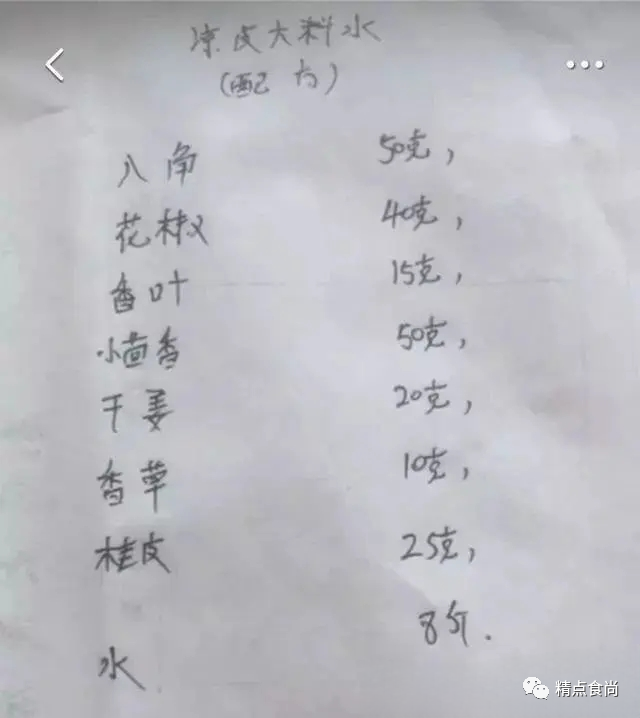 凉皮大料水
(配方)
八角 50克,
花椒 40克,
香叶 15克,
小茴香 50克,
干姜 20克,
香草 10克,
桂皮 25克,
水 8斤.
精点食尚